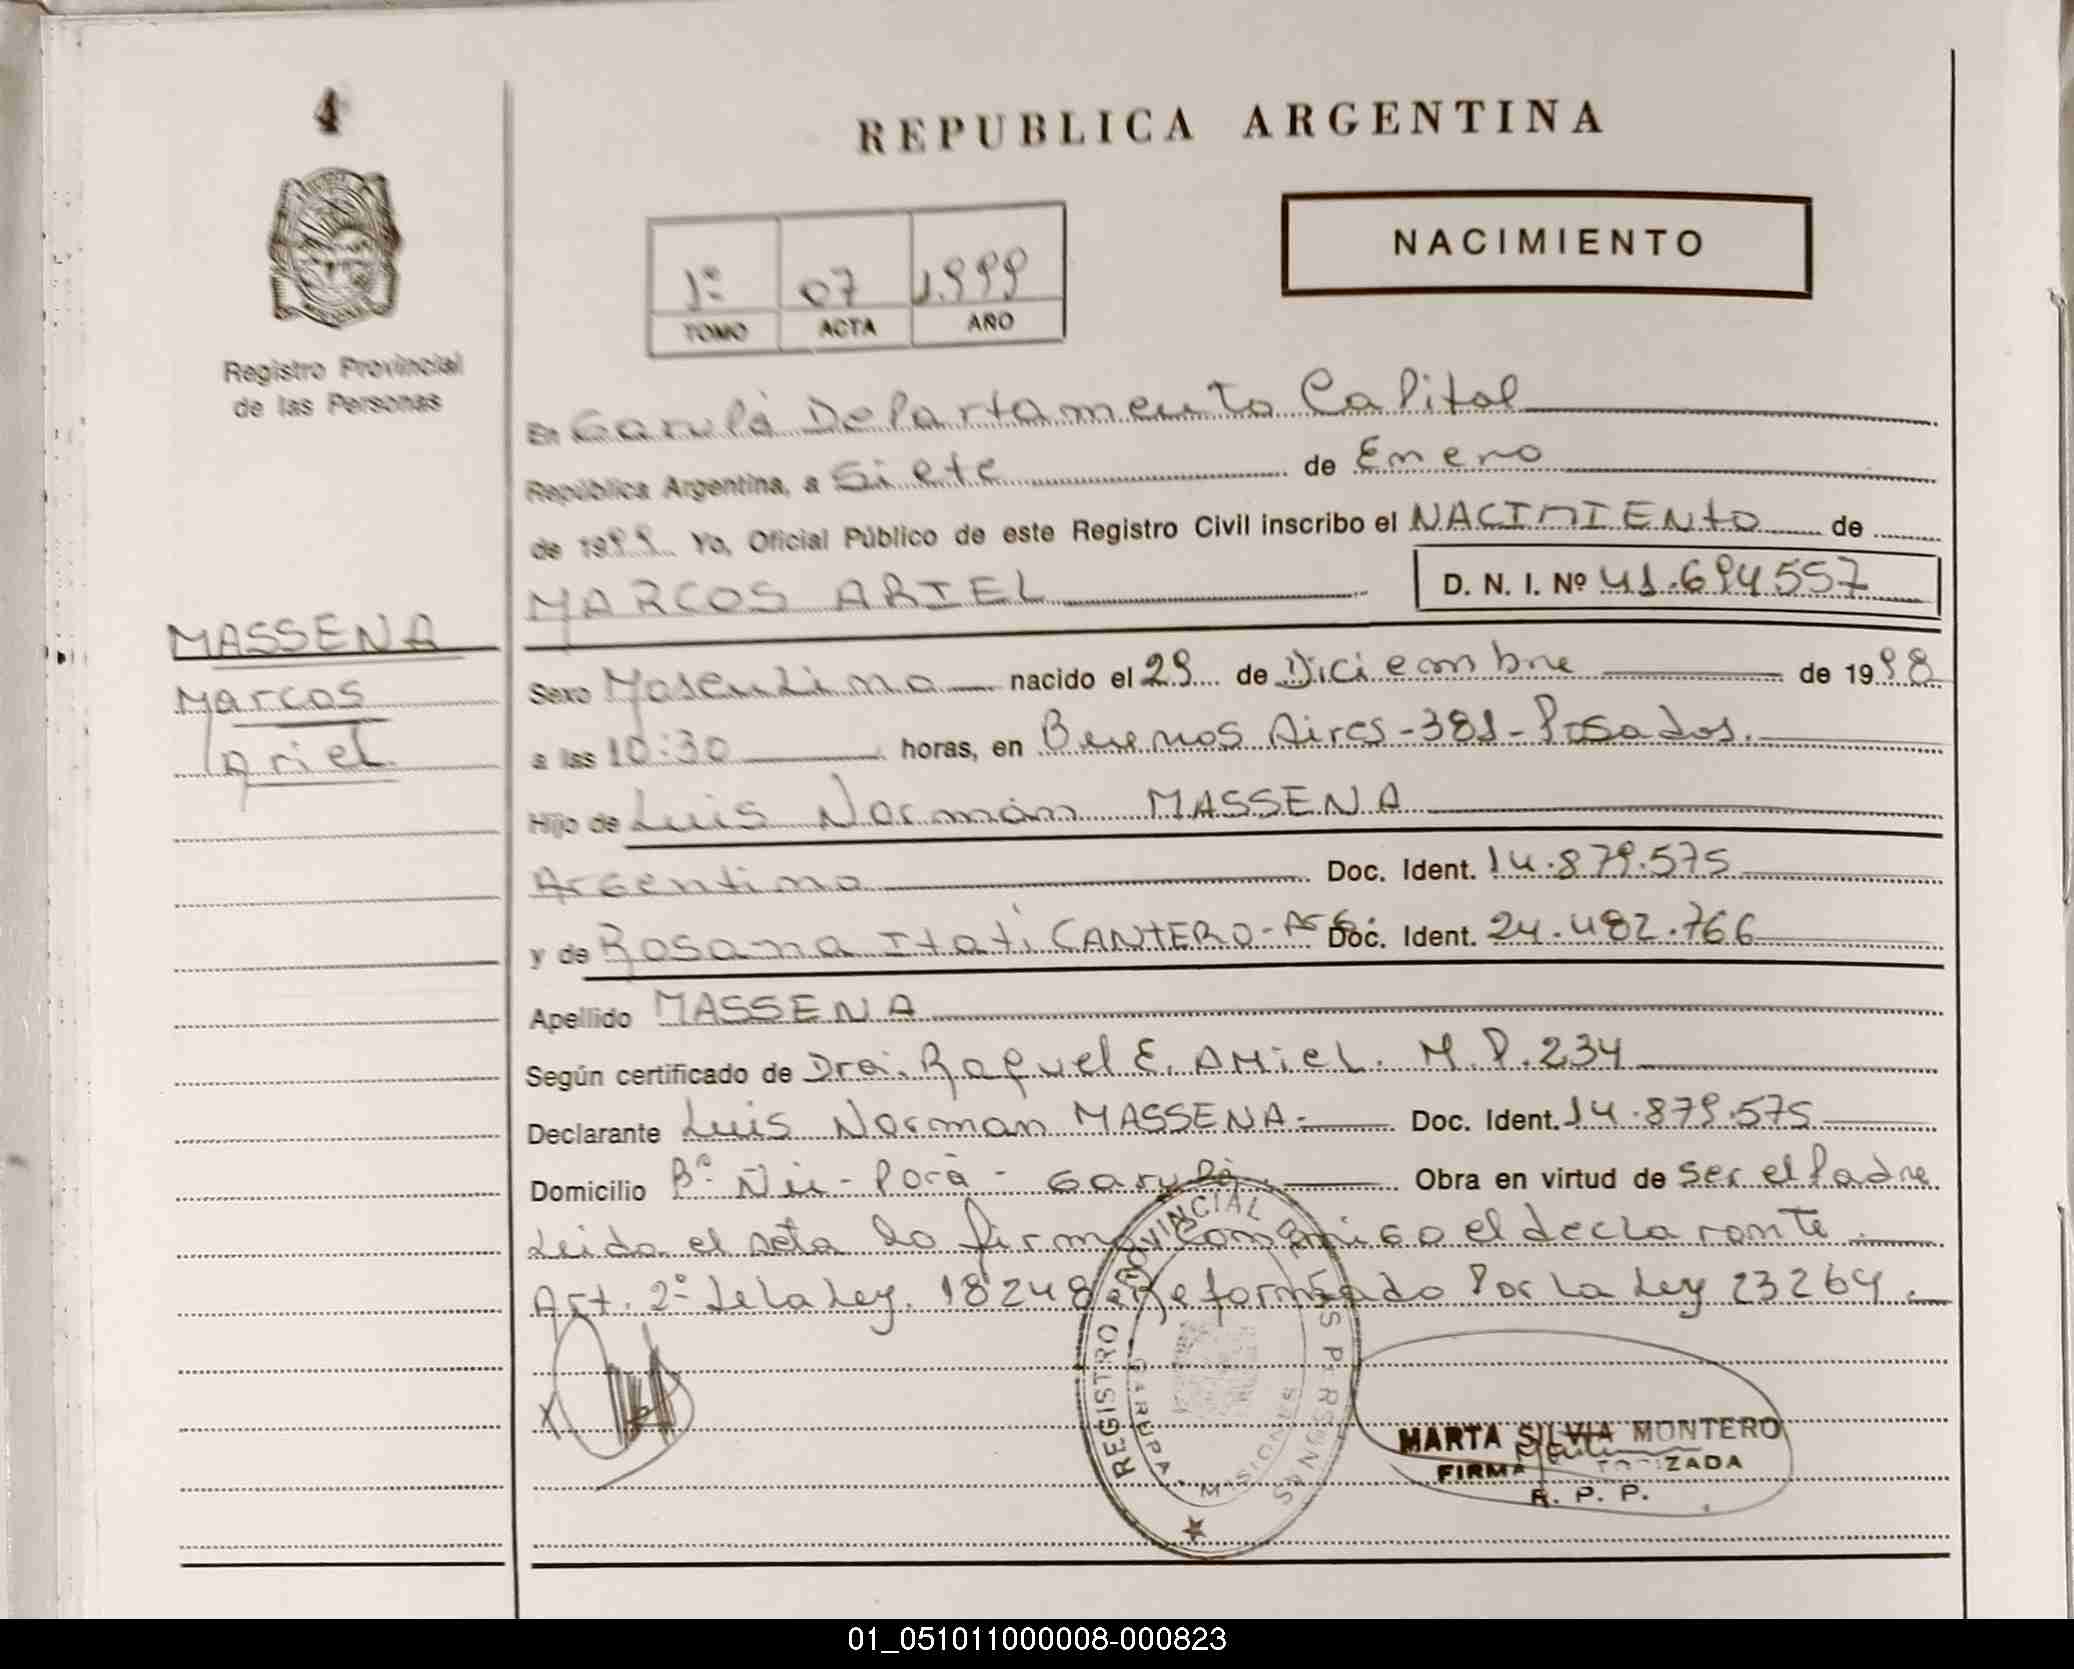 4
REPUBLICA ARGENTINA
NACIMIENTO
1º 07 1.999
TOMO ACTA AÑO
Registro Provincial
de las Personas
En Garupá Departamento Capital
República Argentina, a Siete de Enero
de 1999 Yo, Oficial Público de este Registro Civil inscribo el NACIMIENTO de
MARCOS ARIEL D. N. I. Nº 41.694557
MASSENA
Marcos
Ariel
Sexo Masculino nacido el 29 de Diciembre de 1998
a las 10:30 horas, en Buenos Aires-381-Posadas.
Hijo de Luis Normán MASSENA
Argentino Doc. Ident. 14.879.575
y de Rosana Itatí CANTERO- Doc. Ident. 24.482.766
Apellido MASSENA
Según certificado de Dra. Raquel E. AMiel. M.P.234
Declarante Luis Norman MASSENA.- Doc. Ident. 14.879.575
Domicilio Bº Ñu-Porá - Garupá. Obra en virtud de ser el Padre
Leida el acta la firma conmigo el declarante.
Art. 2º de la Ley. 18248 Reformado Por La Ley 23264.
REGISTRO PROVINCIAL DE LAS PERSONAS
GARUPA - MISIONES
MARTA SILVIA MONTERO
FIRMA AUTORIZADA
R. P. P.
01_051011000008-000823